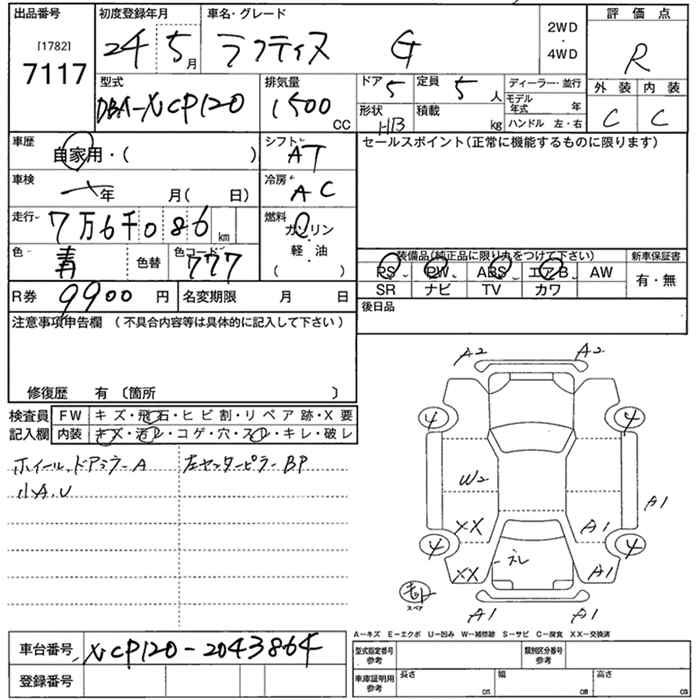 出品番号 初度登録年月 車名・グレード 2WD・4WD 評価点
[1782]
7117 24 5月 ラクティス G R
型式 排気量 ドア 5 定員 5人 ディーラー・並行 外装 内装
DBA-NCP120 1500 CC モデル年式 年 C C
形状 HB 積載 kg ハンドル 左・右
車歴 自家用・( ) シフト AT セールスポイント(正常に機能するものに限ります)
車検 年 月( 日) 冷房 AC
走行 7万6千086 km 燃料 ガソリン・軽油 ( )
色 青 色替 色コード 777 装備品(純正品に限り丸をつけて下さい) 新車保証書
PS PW ABS エアB AW 有・無
R券 9900円 名変期限 月 日 SR ナビ TV カワ
注意事項申告欄 (不具合内容等は具体的に記入して下さい) 後日品
修復歴 有 〔箇所 〕
検査員記入欄 FW キズ・飛石・ヒビ割・リペア跡・X要
内装 キズ・汚レ・コゲ・穴・スレ・キレ・破レ
ホイール、ドアミラーA 左センターピラーBP
小A、U
A2 A2
4 4
W2
A1
XX A1
4 4
XX A1
スペア
A1 A1
A−キズ E−エクボ U−凹み W−補修跡 S−サビ C−腐食 XX−交換済
車台番号 NCP120-2043864 型式指定番号 参考 類別区分番号 参考
登録番号 車庫証明用 参考 長さ cm 幅 cm 高さ cm